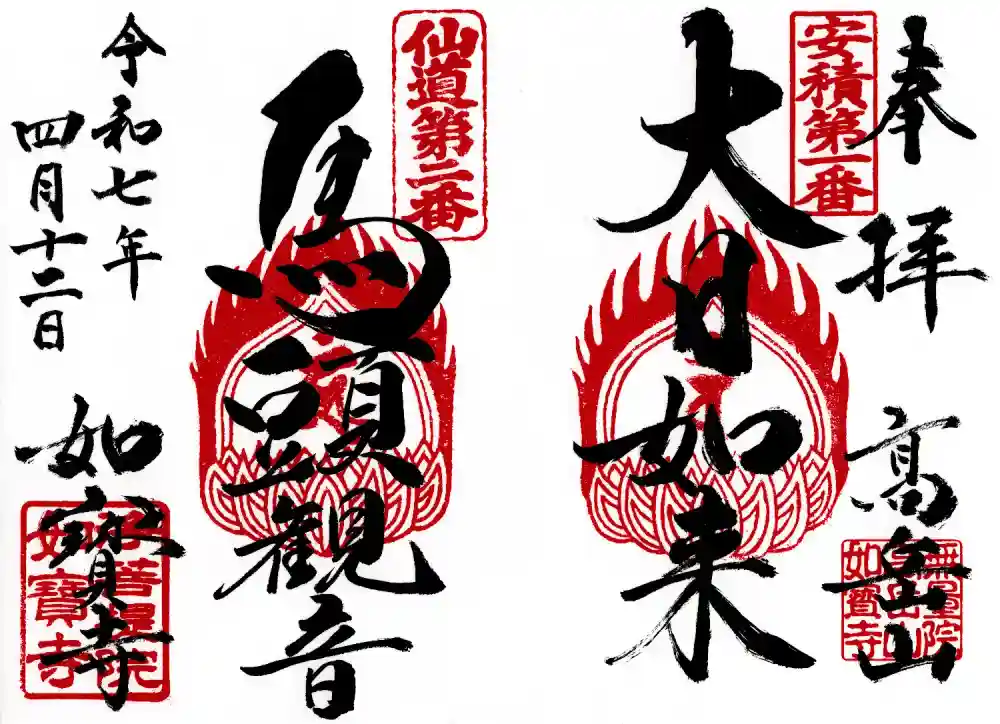 奉拝
高岳山
安積第一番
大日如来
無量院
如寶寺
仙道第二番
馬頭観音
令和七年
四月十二日
如寳寺
菩提院
如寶寺